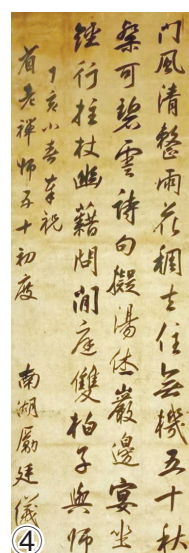 門風清整雨花稠去住無機五十秋
粲可碧雲詩句擬湯休巖邊宴坐
經行拄杖幽藉問閒庭雙柏子與師
丁亥小春奉祝
省老禪師五十初度 南湖勵廷儀
④